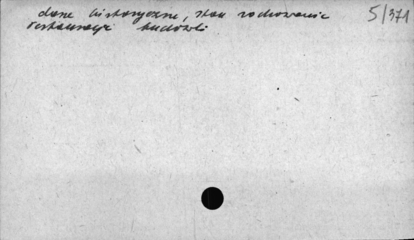 dane historyczne, stan zachowania 5/371
restauracji budowli